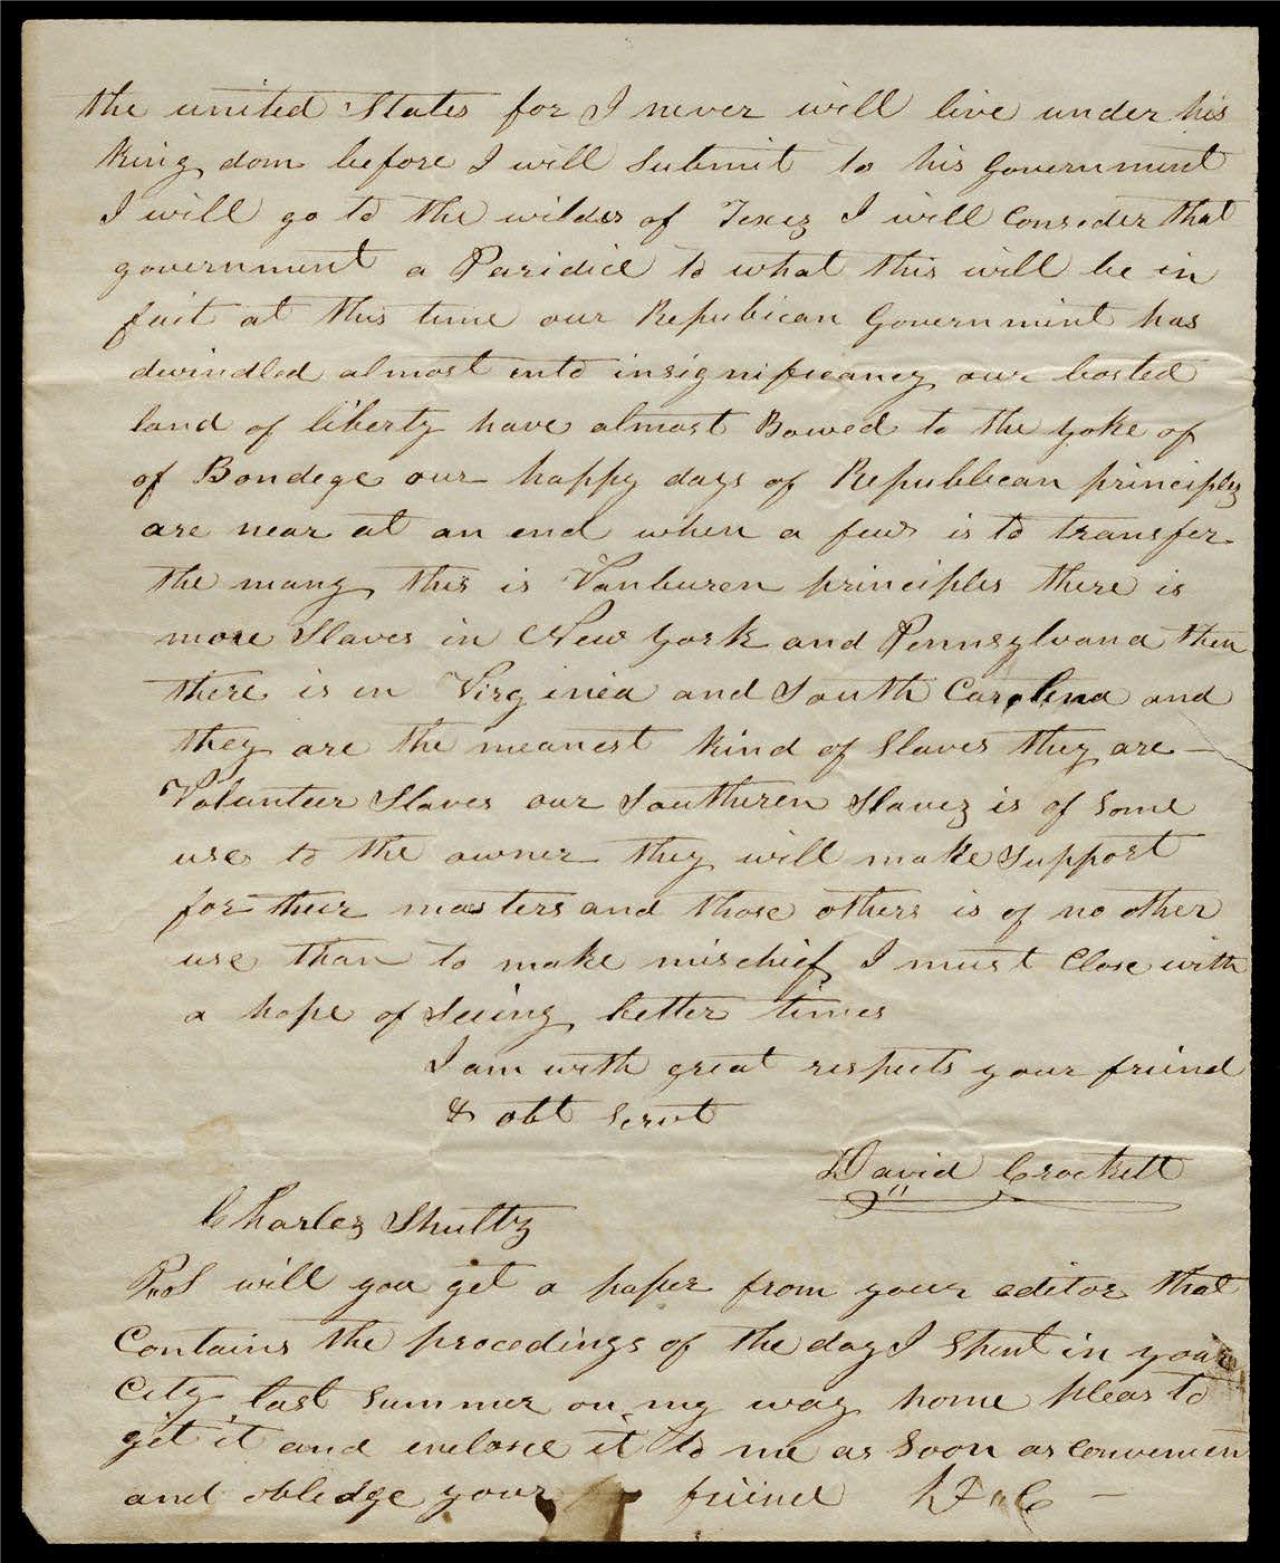 the united States for I never will live under his
king dom before I will Submit to his Government
I will go to the wildes of Texes I will Consider that
government a Paridice to what this will be in
fact at this time our Republican Government has
dwindled almost into insignificancy our bosted
land of liberty have almost Bowed to the yoke of
of Bondege our happy days of Republican principles
are near at an end when a few is to transfer
the many this is Vanburen principles there is
more Slaves in New York and Pennsylvana then
there is in Virginia and South Carolina and
they are the meanest kind of Slaves they are –
Volunteer Slaves our Southern Slaves is of Some
use to the owner they will make Support
for their masters and those others is of no other
use than to make mischief I must Close with
a hope of Seeing better times
I am with great respects your friend
& obt Servt
David Crockett
Charles Shultz
P.S will you get a paper from your editor that
Contains the procedings of the day I Spent in your
City last Summer on my way home pleas to
git it and enclose it to me as Soon as Convenien
and obledge your friend D.C –